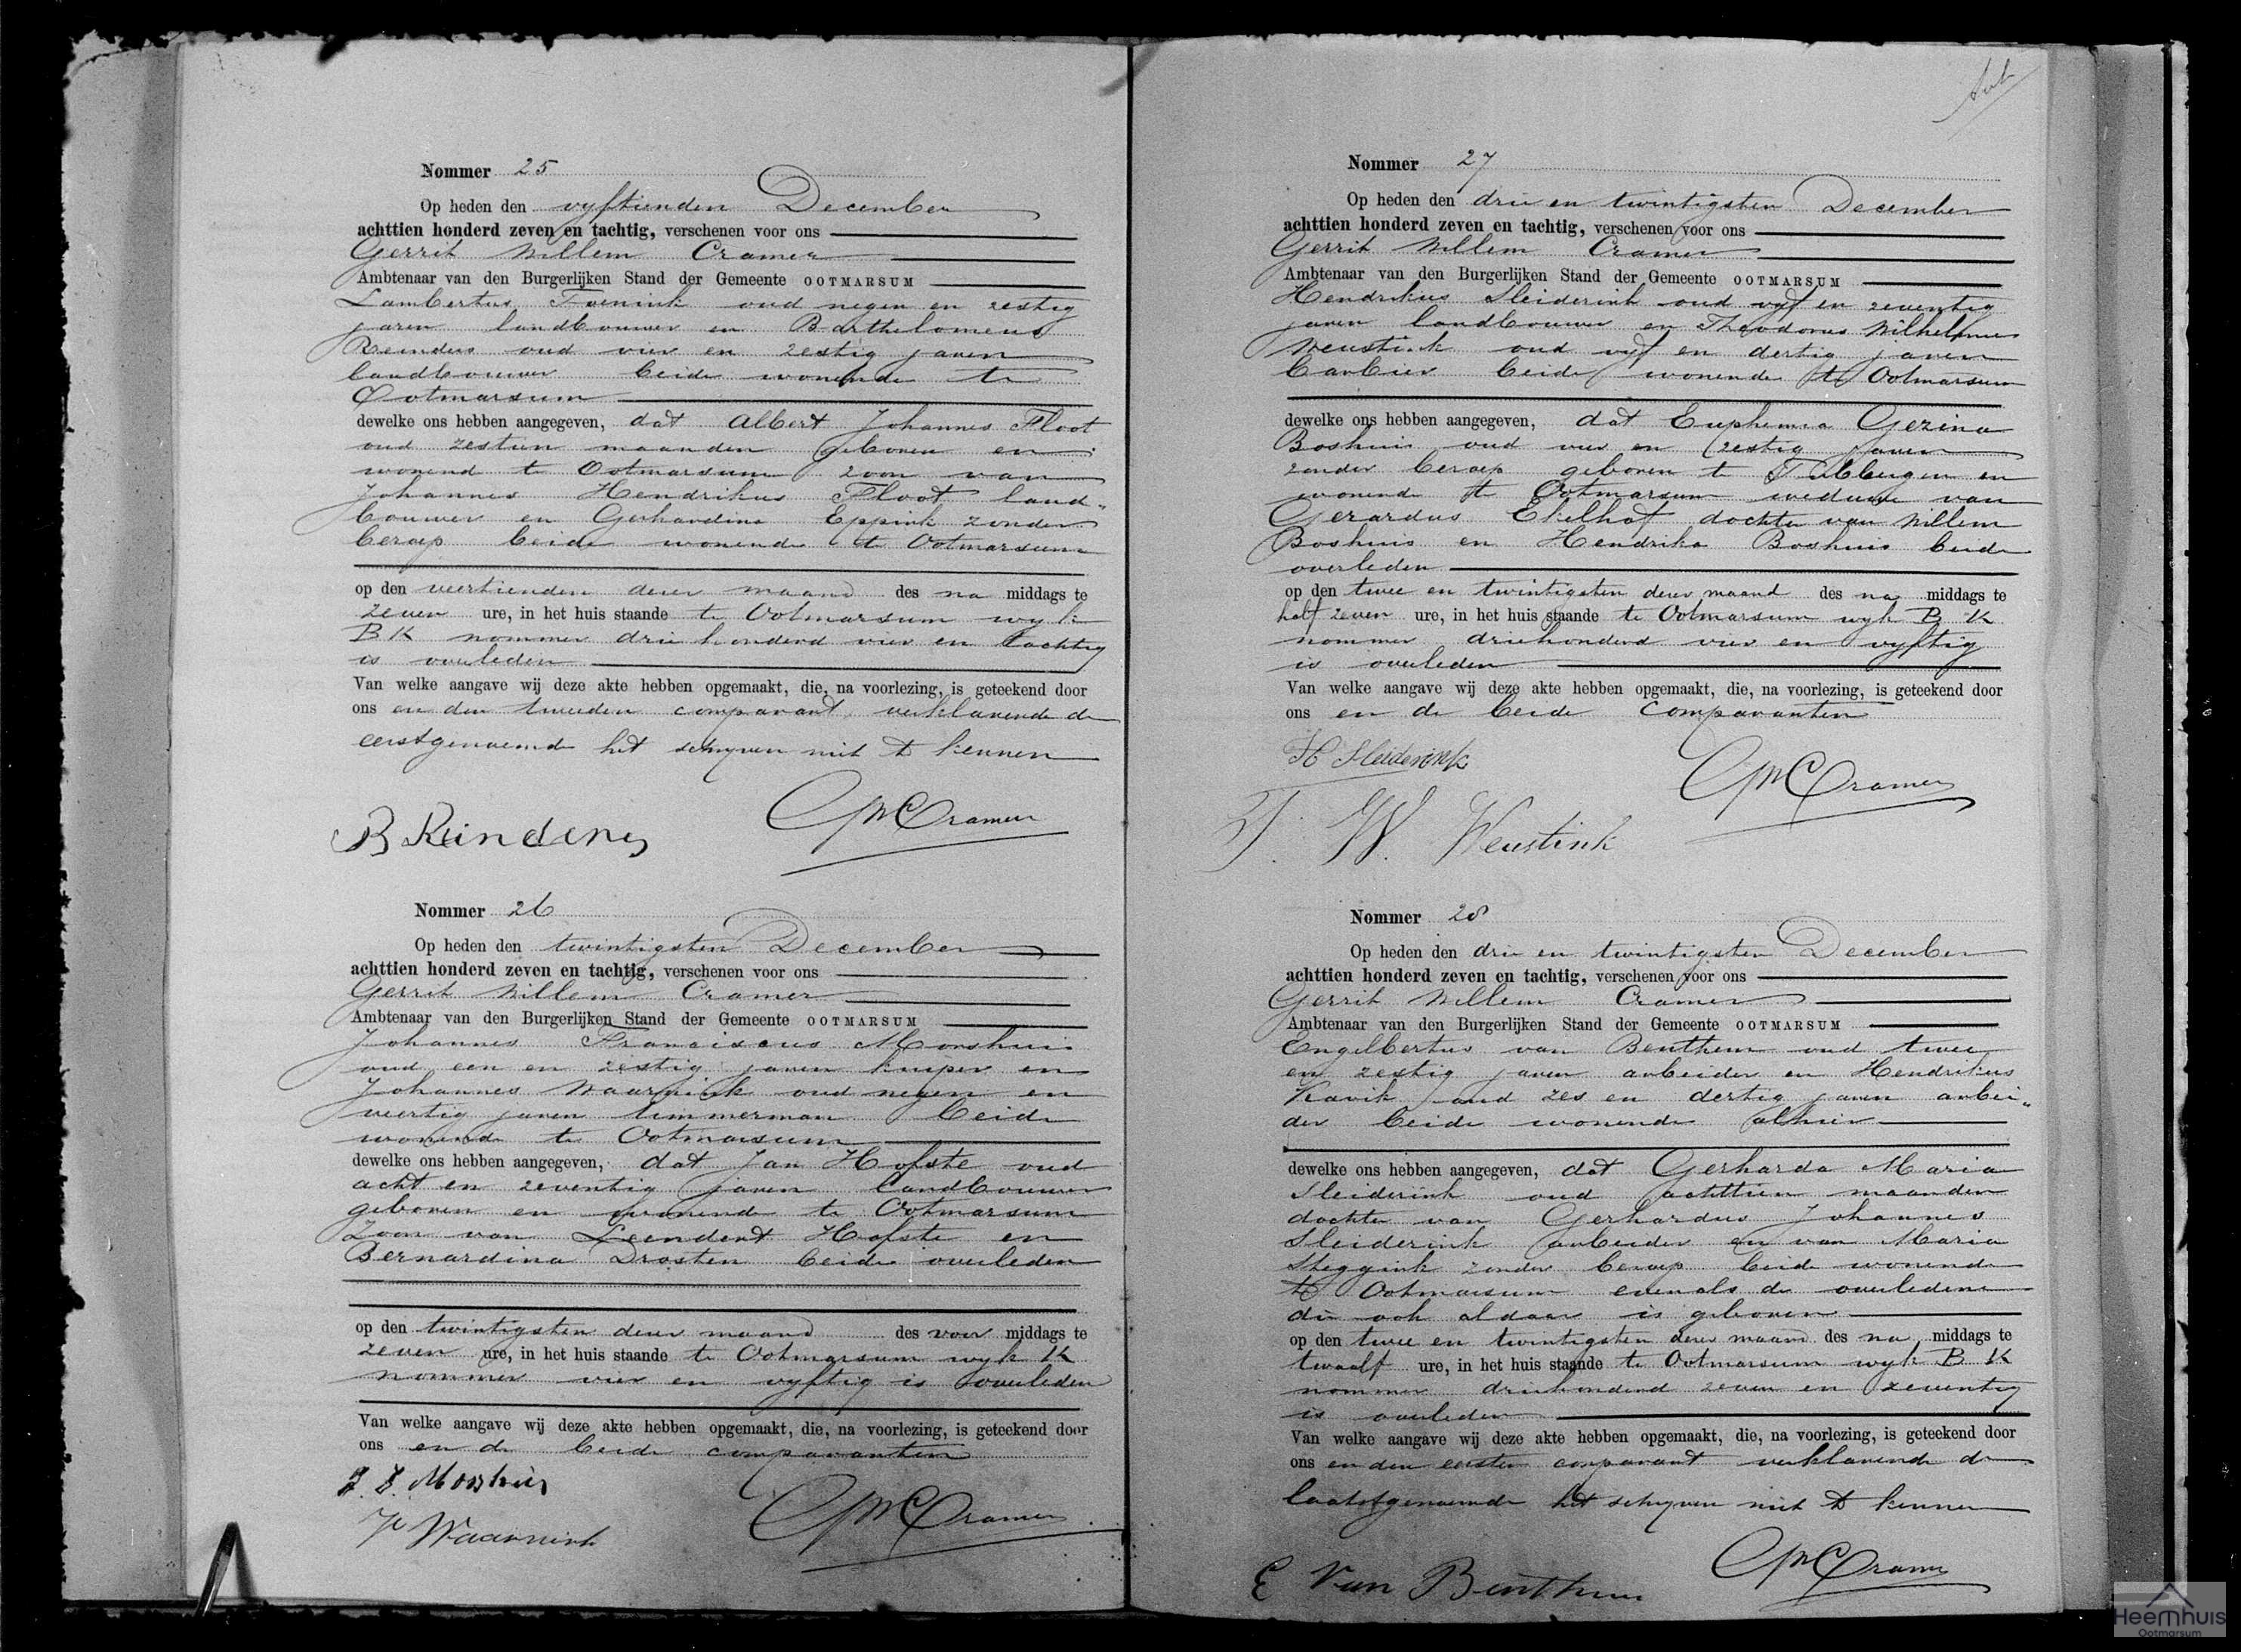 Nommer 25
Op heden den vyftienden December
achttien honderd zeven en tachtig, verschenen voor ons
Gerrit Willem Cramer
Ambtenaar van den Burgerlijken Stand der Gemeente OOTMARSUM
Lambertus oud negen en zestig
jaren landbouwer en Bartholomeus
Reinders oud vier en zestig jaren
landbouwer beide wonende te
Ootmarsum
dewelke ons hebben aangegeven, dat Albert Johannes Floot
oud zestien maanden geboren en
wonend te Ootmarsum zoon van
Johannes Hendrikus Floot land„
bouwer en Gerhardina Eppink zonder
beroep beide wonende te Ootmarsum
op den veertienden dezer maand des na middags te
zeven ure, in het huis staande te Ootmarsum wyk
B K nommer drie honderd vier en tachtig
is overleden
Van welke aangave wij deze akte hebben opgemaakt, die, na voorlezing, is geteekend door
ons en den tweeden comparant, verklarende de
eerstgenoemde het schryven niet te kennen
GWCramer
B Reinders
Nommer 26
Op heden den twintigsten December
achttien honderd zeven en tachtig, verschenen voor ons
Gerrit Willem Cramer
Ambtenaar van den Burgerlijken Stand der Gemeente OOTMARSUM
Johannes Franciscus Morshuis
oud een en zestig jaren kuiper en
Johannes Waarnink oud negen en
veertig jaren timmerman beide
wonende te Ootmarsum
dewelke ons hebben aangegeven, dat Jan Hofste oud
acht en zeventig jaren landbouwer
geboren en wonend te Ootmarsum
Zoon van Leendert Hofste en
Bernardina Drosten beide overleden
op den twintigsten dezer maand des voor middags te
zeven ure, in het huis staande te Ootmarsum wyk K
nommer vier en vyftig is overleden
Van welke aangave wij deze akte hebben opgemaakt, die, na voorlezing, is geteekend door
ons en de beide comparanten
J. F. Morshuis
GWCramer
Waarnink
Nommer 27
Op heden den drie en twintigsten December
achttien honderd zeven en tachtig, verschenen voor ons
Gerrit Willem Cramer
Ambtenaar van den Burgerlijken Stand der Gemeente OOTMARSUM
Hendrikus Sleiderink oud vyf en zeventig
jaren landbouwer en Theodorus Wilhelmus
Weustink oud vyf en dertig jaren
barbier beide wonende te Ootmarsum
dewelke ons hebben aangegeven, dat Euphemia Gezina
Boshuis oud vier en zestig jaren
zonder beroep geboren te Tubbergen en
wonende te Ootmarsum weduwe van
Gerardus Ekelhof dochter van Willem
Boshuis en Hendrika Boshuis beide
overleden
op den twee en twintigsten dezer maand des na middags te
half zeven ure, in het huis staande te Ootmarsum wyk B K
nommer driehonderd vier en vyftig
is overleden
Van welke aangave wij deze akte hebben opgemaakt, die, na voorlezing, is geteekend door
ons en de beide comparanten
H Sleiderink
GWCramer
T. W. Weustink
Nommer 28
Op heden den drie en twintigsten December
achttien honderd zeven en tachtig, verschenen voor ons
Gerrit Willem Cramer
Ambtenaar van den Burgerlijken Stand der Gemeente OOTMARSUM
Engelbertus van Benthem oud twee
en zestig jaren arbeider en Hendrikus
Kravik oud zes en dertig jaren arbei„
der beide wonende alhier
dewelke ons hebben aangegeven, dat Gerharda Maria
Sleiderink oud achttien maanden
dochter van Gerhardus Johannes
Sleiderink arbeider en van Maria
Steggink zonder beroep beide wonende
te Ootmarsum evenals de overledene
die ook aldaar is geboren
op den twee en twintigsten dezer maand des na middags te
twaalf ure, in het huis staande te Ootmarsum wyk B K
nommer driehonderd zeven en zeventig
is overleden
Van welke aangave wij deze akte hebben opgemaakt, die, na voorlezing, is geteekend door
ons en den eersten comparant verklarende de
laatstgenoemde het schryven niet te kennen
GWCramer
E Van Benthem
Heemhuis
Ootmarsum